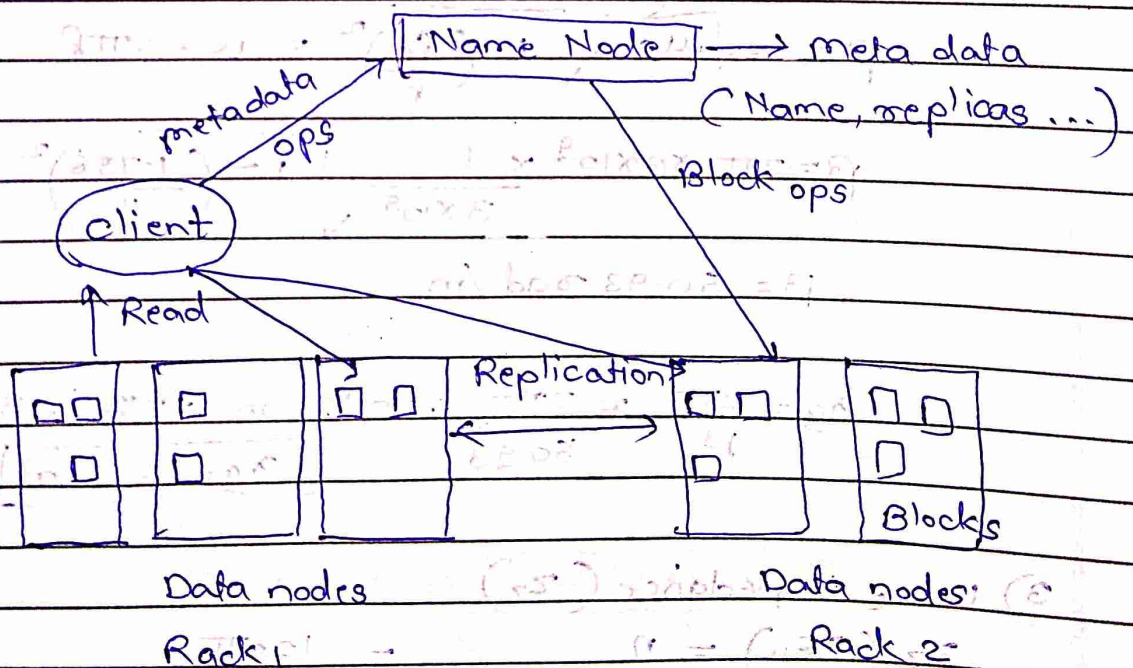 Name Node → meta data
(Name, replicas ...)
metadata
ops
Block ops
client
Read
Replication
Blocks
Data nodes
Data nodes
Rack 1
Rack 2